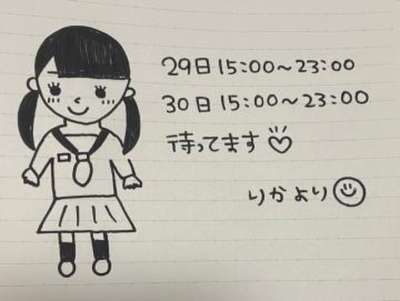 29日 15:00～23:00
30日 15:00～23:00
待ってます♡
りかより☺